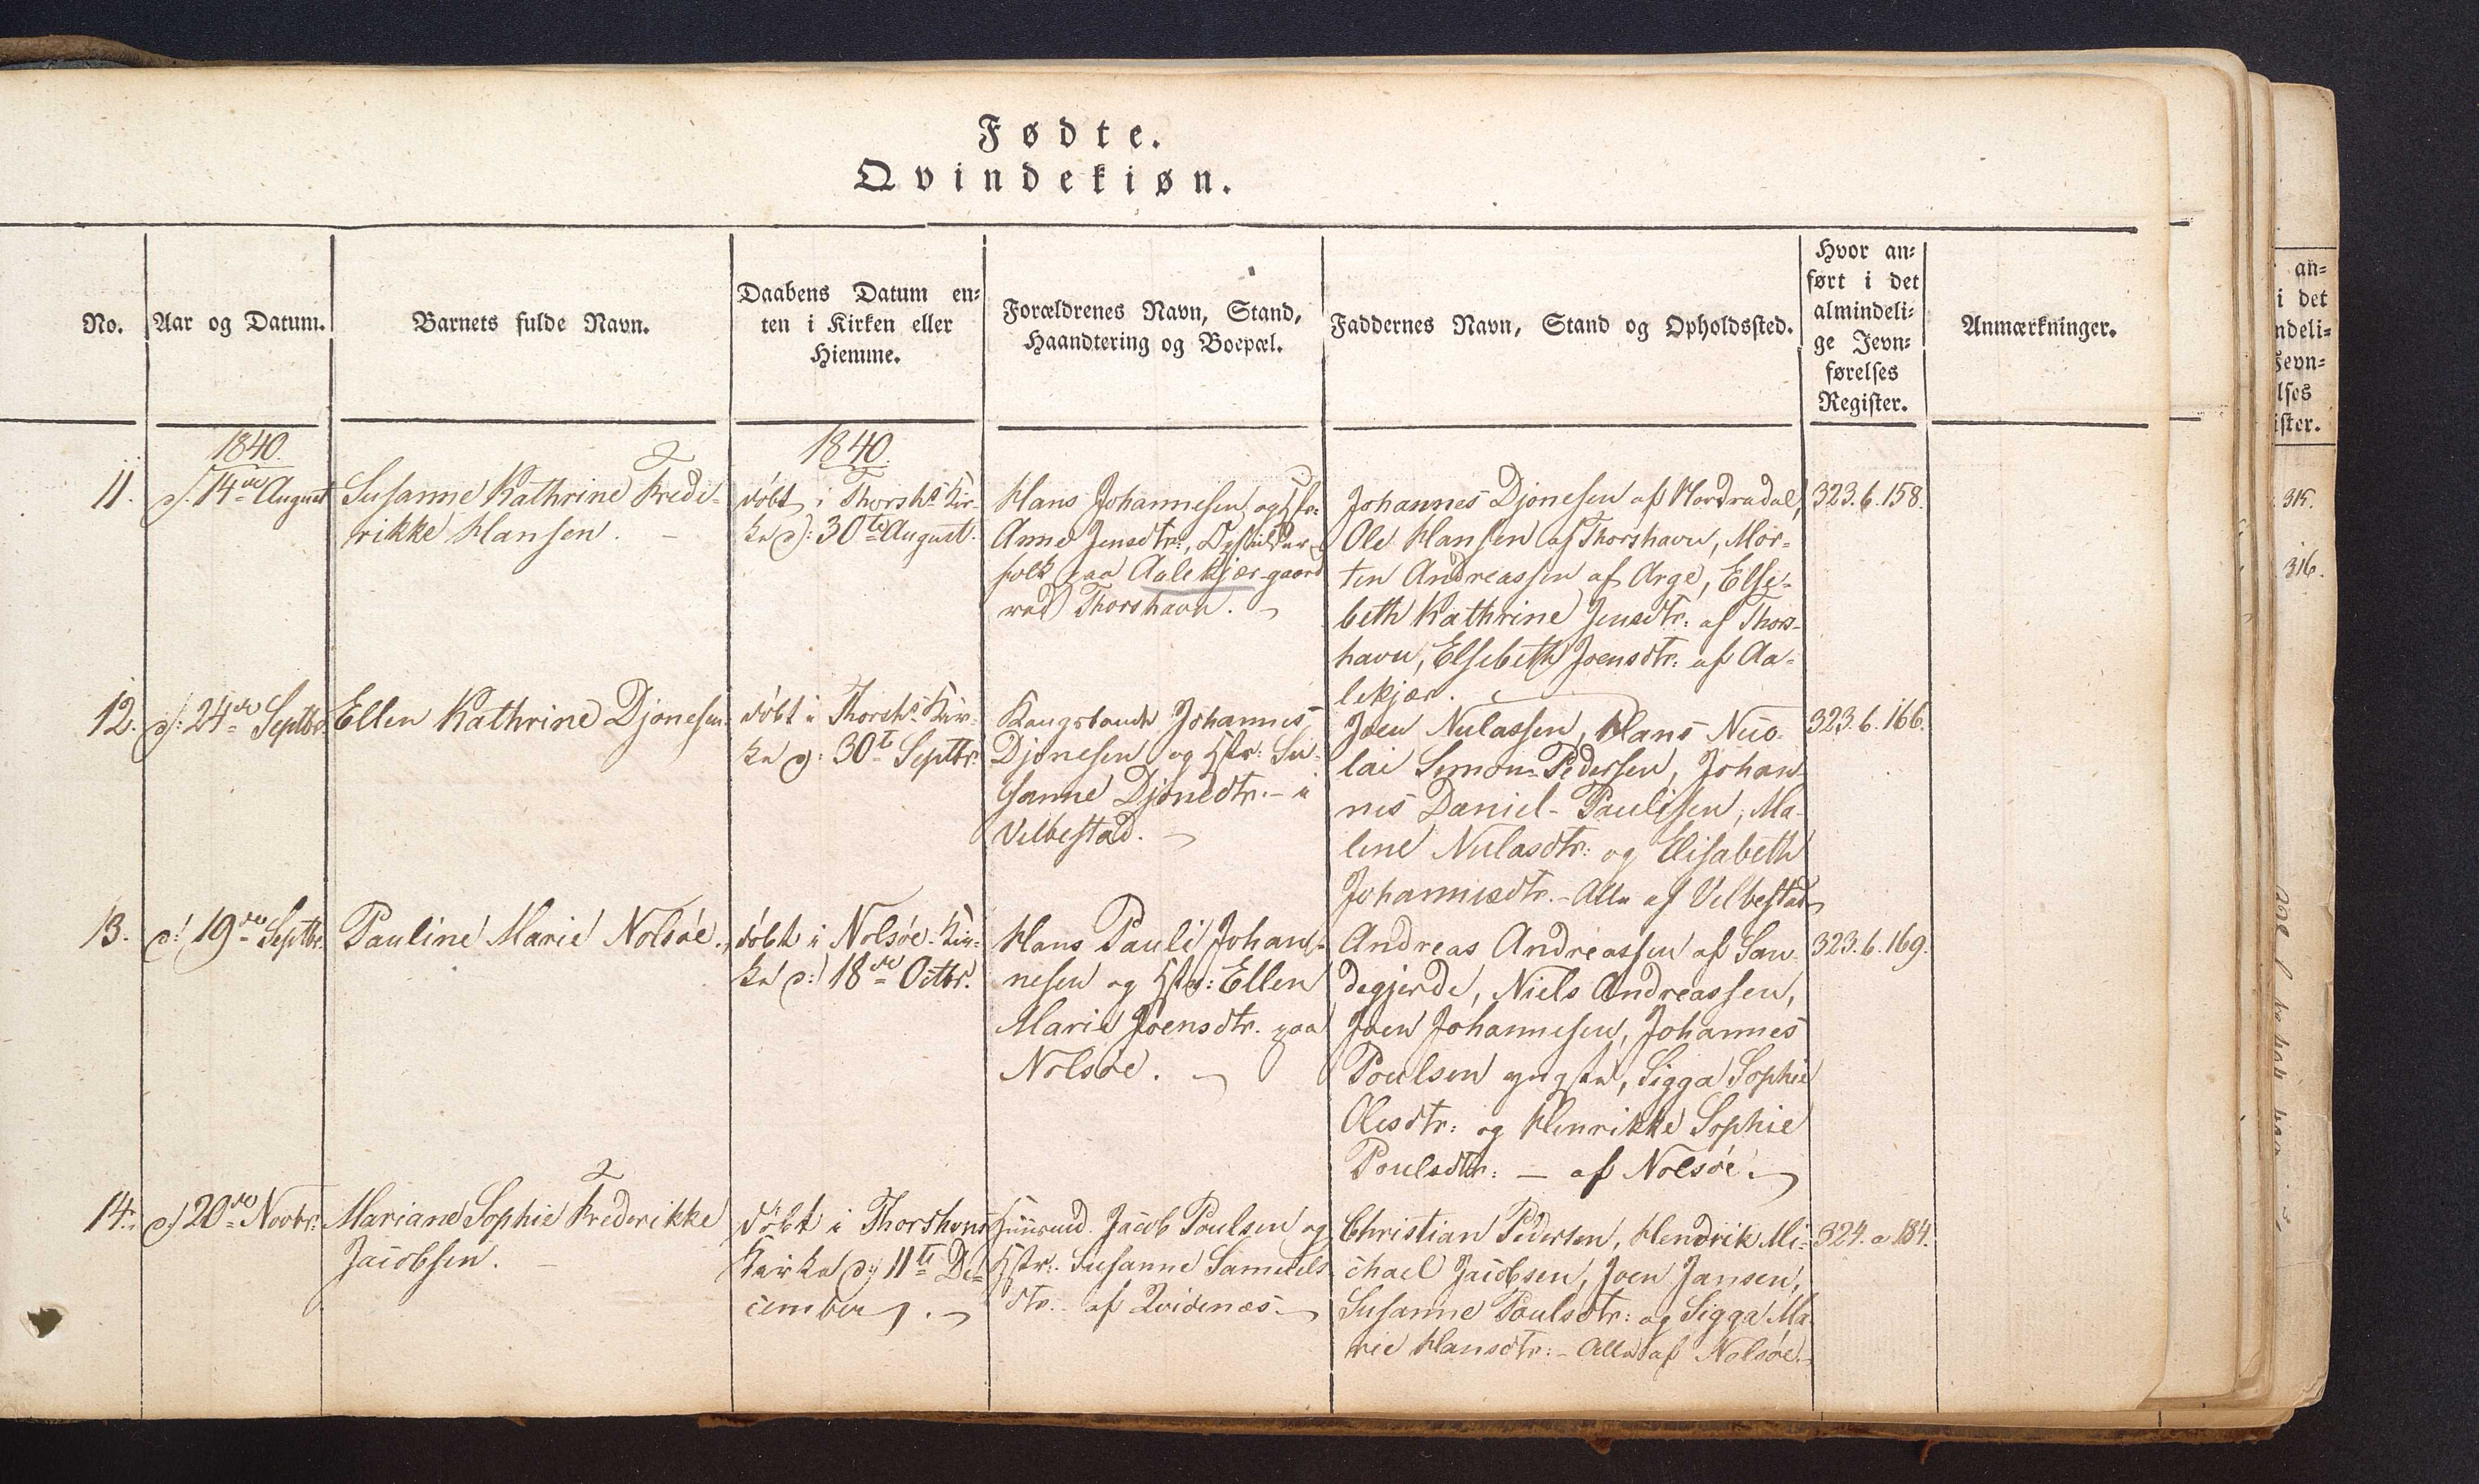 Fødte.
Qvindekiøn.
No.
Aar og Datum.
Barnets fulde Navn.
Daabens Datum en-
ten i Kirken eller
Hiemme.
Forældrenes Navn, Stand,
Haandtering og Boepæl.
Faddernes Navn, Stand og Opholdssted.
Hvor an-
ført i det
almindeli-
ge Jevn-
førelses
Register.
Anmærkninger.
1840.
11.
d: 14de August
Susanne Kathrine Frede-
rikke Hansen. -
1840.
døbt i Thorshs Kir-
ke d: 30te August.
Hans Johannesen og Hstr:
Anne Jensdtr:,
folk paa Aalekjær-gaard
ved Thorshavn.
Johannes Djonesen af Nordradal,
Ole Hansen af Thorshavn, Mor-
ten Andreassen af Arge, Else-
beth Kathrine Jensdtr: af Thors-
havn, Elsebeth Joensdtr: af Aa-
lekjær.
323. b. 158.
12.
d: 24de Septbr.
Ellen Kathrine Djonesen.
døbt i Thorshs Kir-
ke d: 30te Septbr.
Kongsbonde Johannes
Djonesen og Hstr: Su-
sanne Djonedtr: - i
Velbestad.
Joen Nulassen, Hans Nico-
lai Simon-Pedersen, Johan-
nes Daniel-Paulisen, Ma-
lene Nulasdtr: og Elisabeth
Johannesdtr. - Alle af Velbestad
323. b. 166.
13.
d: 19de Septbr.
Pauline Marie Nolsøe.
døbt i Nolsøe-Kir-
ke d: 18de Octbr.
Hans Pauli Johan-
nesen og Hstr: Ellen
Marie Joensdtr. paa
Nolsøe.
Andreas Andreassen af San-
degjerde, Niels Andreassen,
Joen Johannesen, Johannes
Poulsen yngste, Sigga Sophie
Olesdtr: og Henrikke Sophie
Poulsdtr: - af Nolsøe.
323. b. 169.
14.
d: 20de Novbr.
Mariane Sophie Frederikke
Jacobsen. -
døbt i Thorshvns
Kirke d: 11te De-
cember.
Huusmd. Jacob Poulsen og
Hstr: Susanne Samuels
dtr. af Qvidenæs.
Christian Pedersen, Hendrik Mi-
chael Jacobsen, Joen Jansen,
Susanne Poulsdtr: og Sigga Ma-
rie Hansdtr: - Alle af Nolsøe.
324. a 184.
an-
i det
ndeli-
Jevn-
lses
ister.
315.
316.